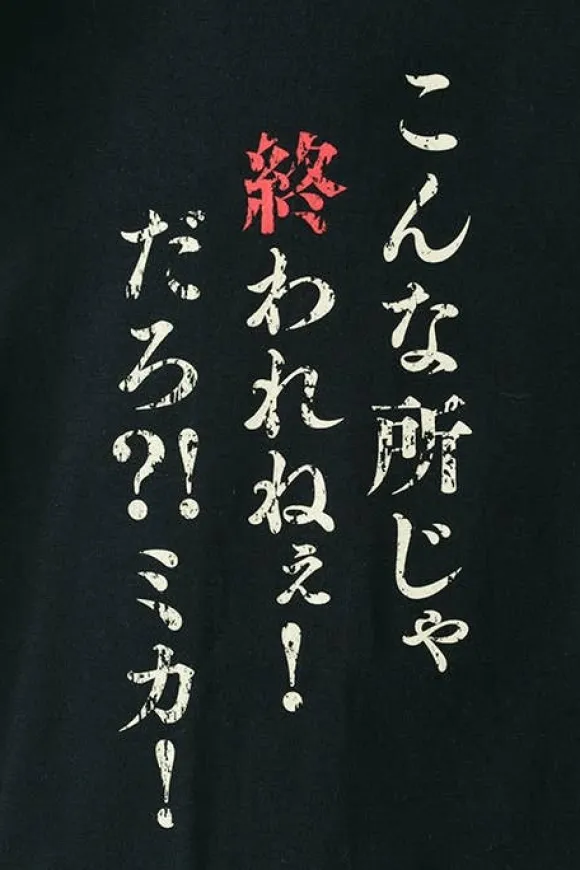 こんな所じゃ
終われねぇ！
だろ?!ミカ！